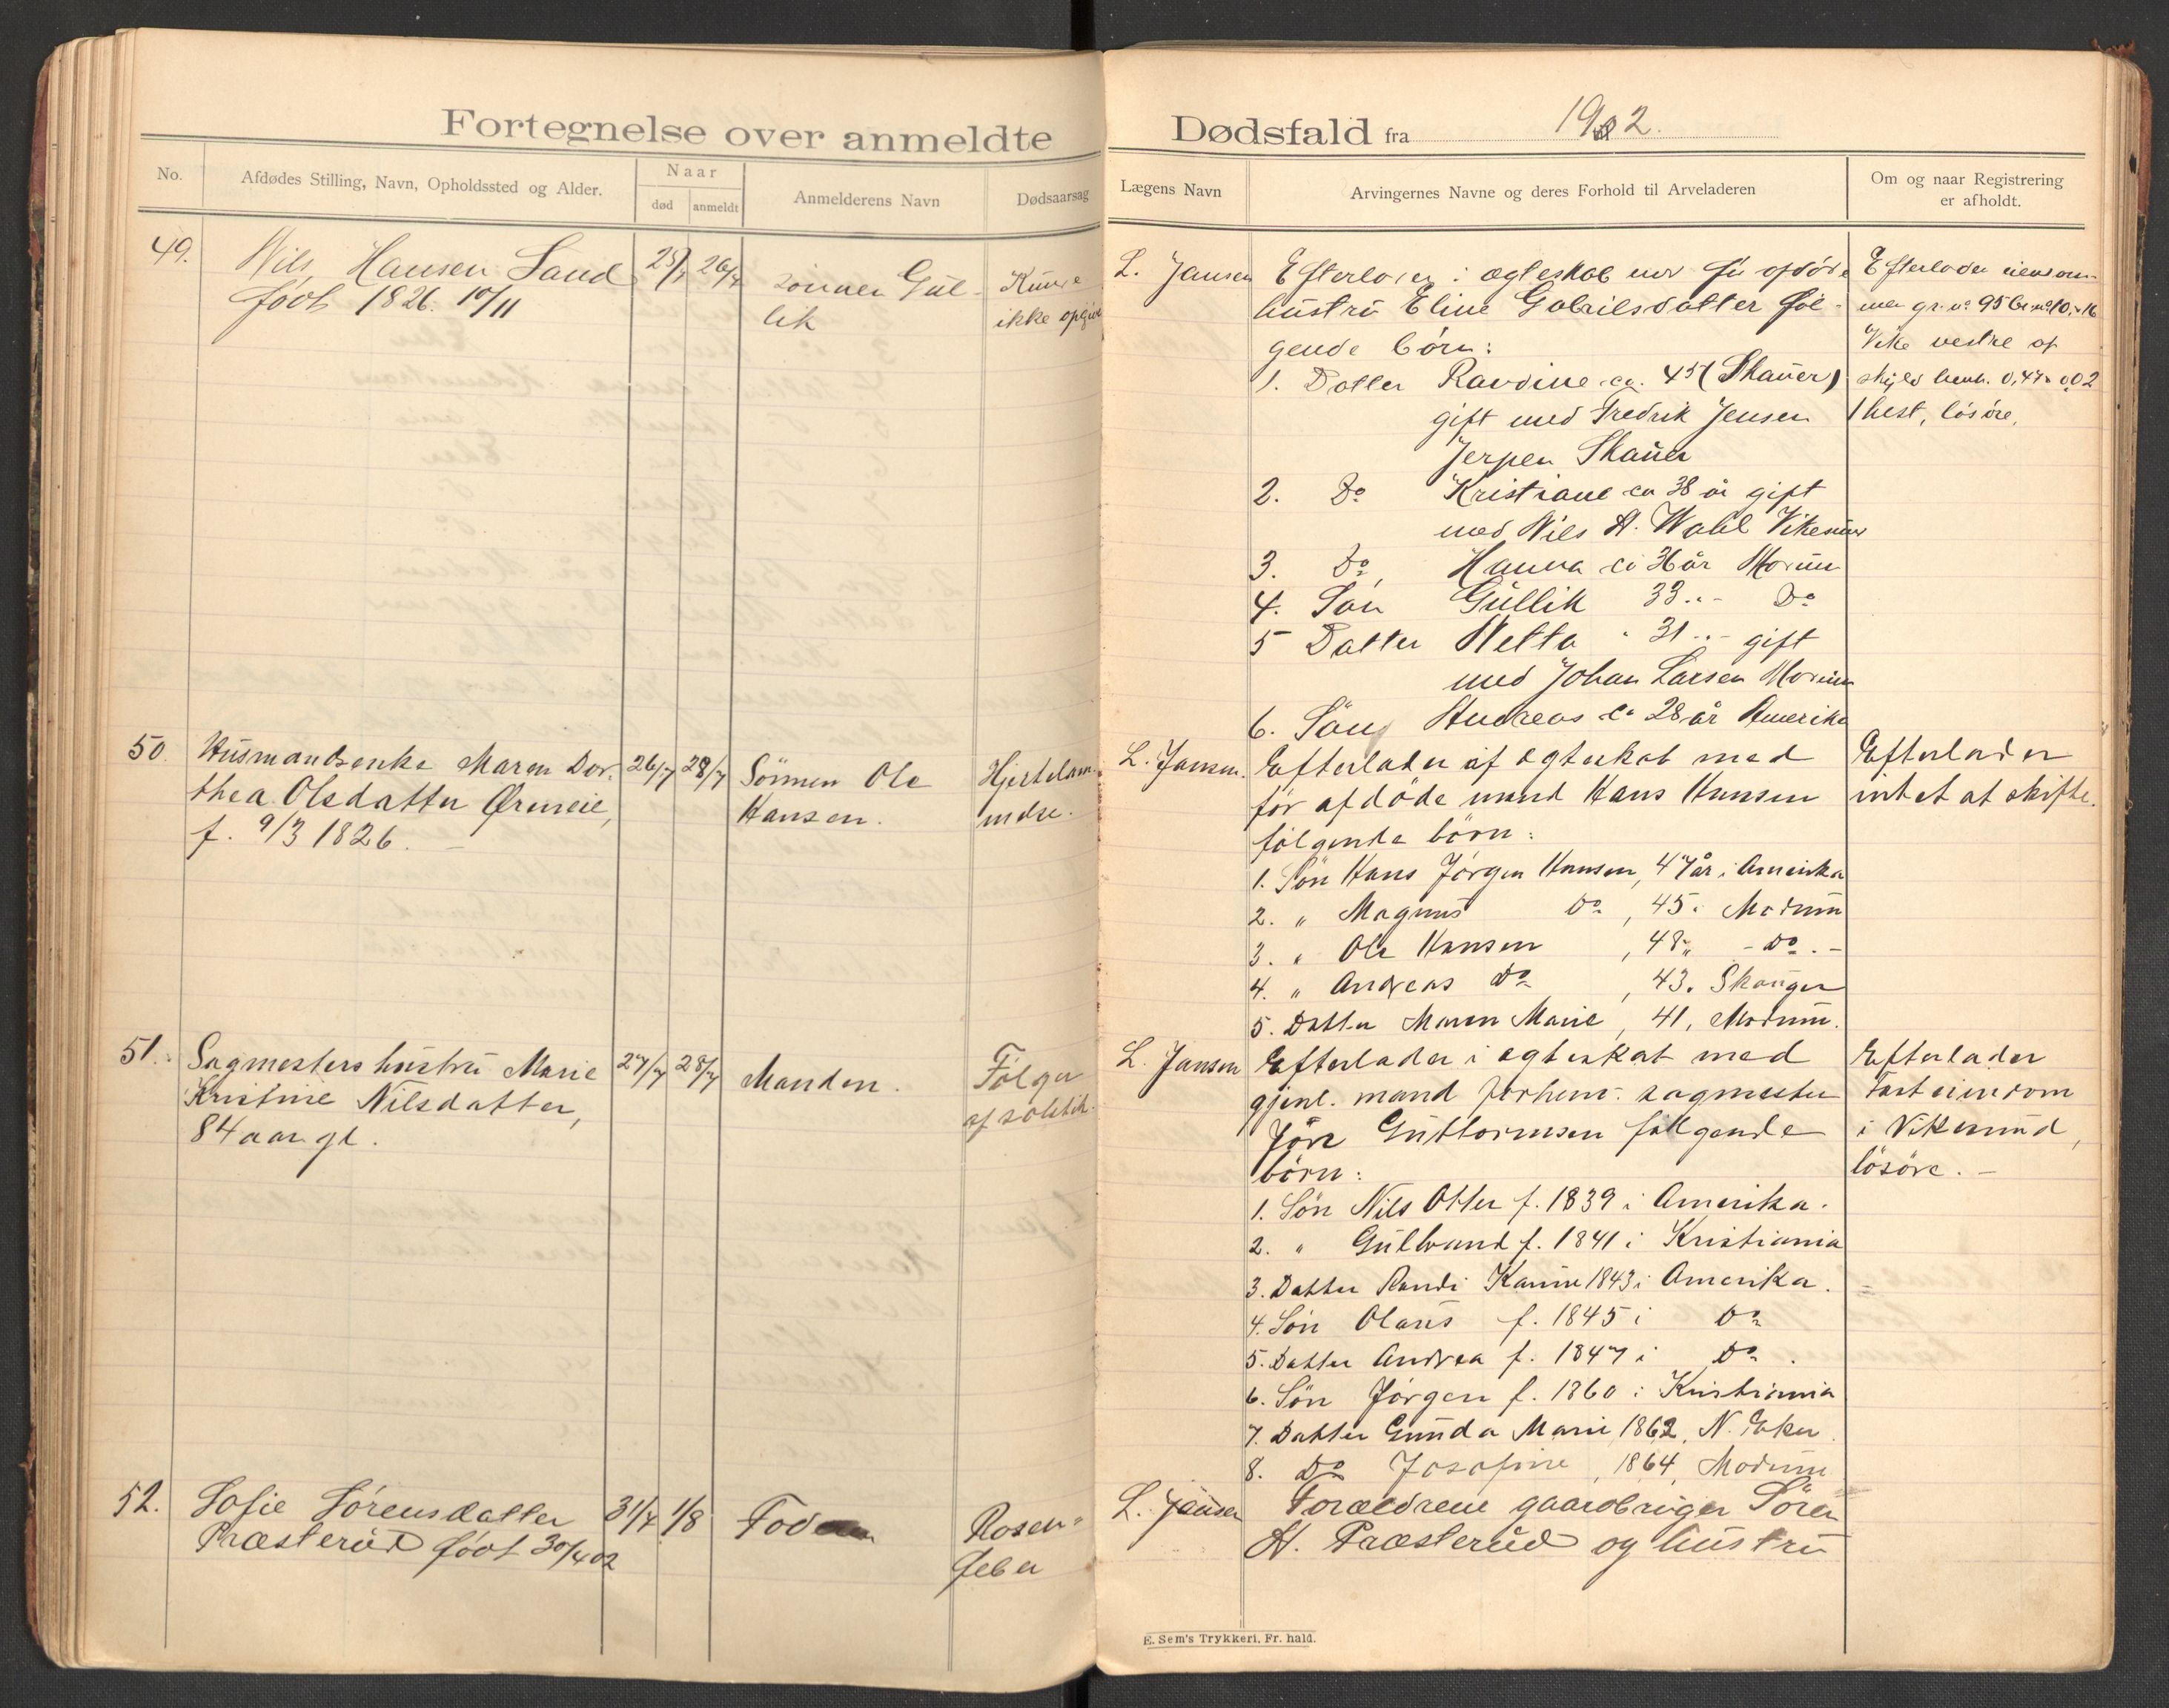 Fortegnelse over anmeldte
No.
Afdødes Stilling, Navn, Opholdssted og Alder.
Naar
død
anmeldt
Anmelderens Navn
Dødsaarsag
49.
Nils Hansen Sand
født 1826. 10/11
25/7
26/7
sönnen Gul-
lik
Kunde
ikke opgive
50.
Husmandsenke Maren Dor-
thea Olsdatter Øreneie,
f. 9/3 1826.
26/7
28/7
Sönnen Ole
Hansen.
Hjertelam-
melse.
51.
Sagmesters hustru Marie
Kristine Nilsdatter,
84 aar gl.
27/7
28/7
Manden.
Følger
af solstik.
52.
Sofie Sörensdatter
Præsterud født 30/4 02
31/7
1/8
Rosen-
feber
Dødsfald fra 1902.
Lægens Navn
Arvingernes Navne og deres Forhold til Arveladeren
Om og naar Registrering
er afholdt.
L. Jansen
Efterlader i ægteskab med før afdøde
hustru Eline Gabrielsdatter føl-
gende børn:
1. Datter Randine ca. 45 (Skauer)
gift med Fredrik Jensen
Jerpen Skauer
2. Do Kristiane ca 38 år gift
med Nils A. Wahl Vikesund
3. Do, Hanna ca 36 år Modum
4. Søn Gullik 33 " - Do
5 Datter Netta " 31 " - gift
med Johan Larsen Modum
6. Søn, Andreas ca 28 år Amerika
Efterlader eiendom-
men gr. no 95 br. no 10 - 16
Vike vestre af
skyld henh. 0,47 - 0,02
1 hest, løsøre.
L. Jansen.
Efterlader af egteskab med
før afdöde mand Hans Hansen
fölgende börn:
1. Sön Hans Jörgen Hansen, 47 år i Amerika
2. " Magnus Do, 45 " Modum
3. " Ole Hansen, 48 " - Do. -
4. " Andreas Do, 43 " Skauger
5. Datter Maren Marie, 41, Modum.
Efterlader
intet at skifte.
L. Jansen
Efterlader i egteskab med
gjenl. mand forhenv. sagmester
Jörn Guttormsen fölgende
börn:
1. Sön Nils Otter f. 1839 i Amerika.
2. " Gulbrand f. 1841 i Kristiania
3. Datter Randi Karine 1843 i Amerika.
4. Sön Olaus f. 1845 i Do
5. Datter Andrea f. 1847 i Do.
6. Sön Jörgen f. 1860 i Kristiania
7. Datter Gunda Marie 1862, N. Eker.
8. Do Josefine, 1864, Modum
Efterlader
fast eiendom
i Vikesund,
lösöre. -
L. Jansen
Forældrene gaardbruger Sören
A. Præsterud og hustru
E. Sem's Trykkeri, Fr.hald.